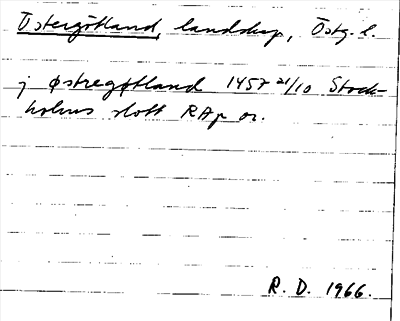 Östergötland, landskap, Östg. l.
j østregøtland 1457 21/10 Stock-
holms slott RAp or.
R. D. 1966.